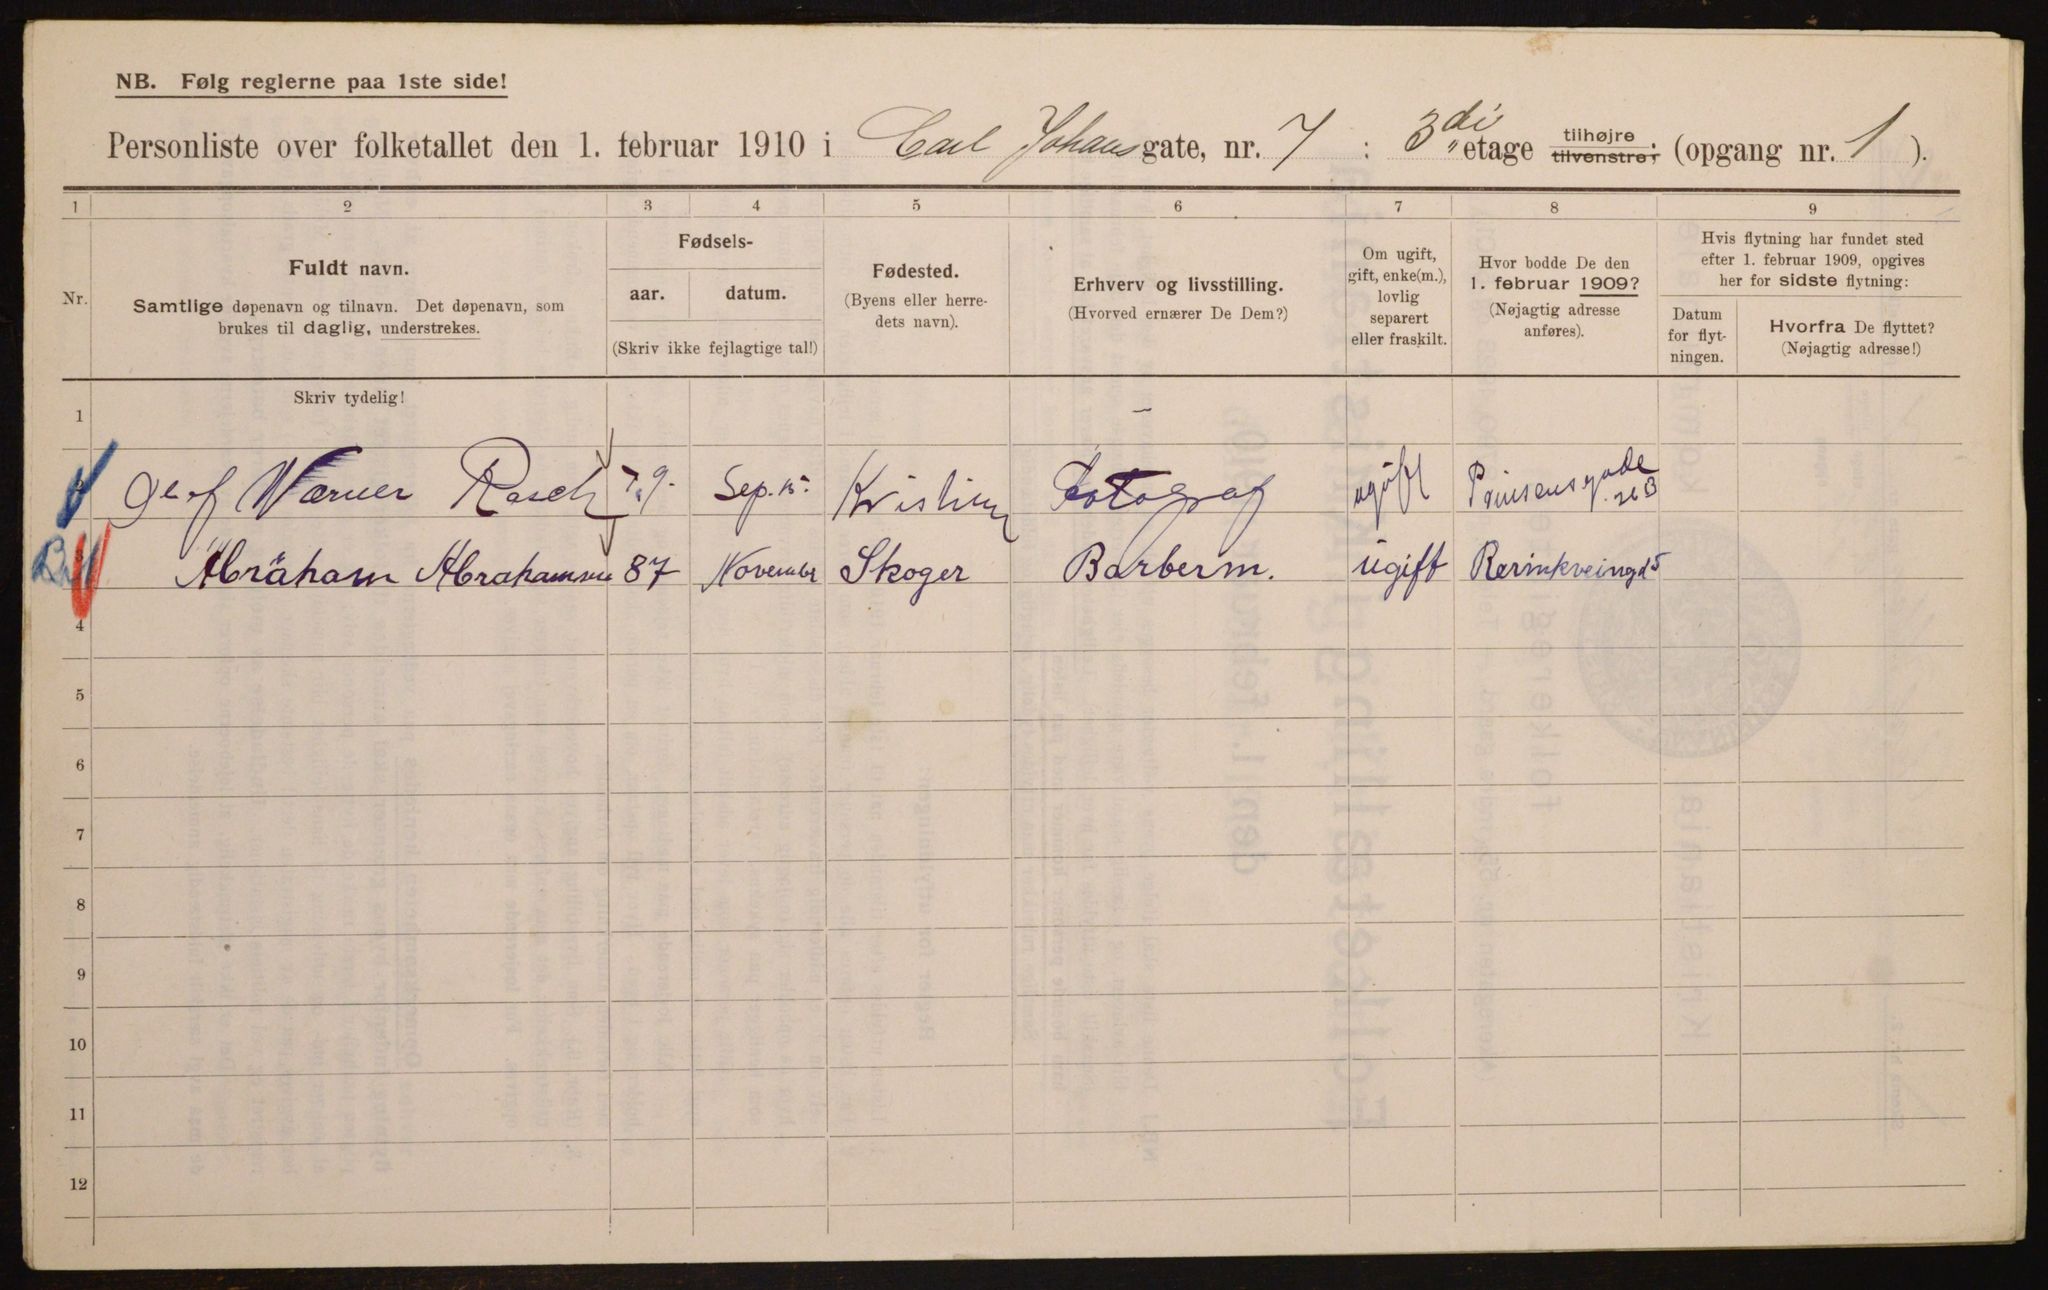 NB. Følg reglerne paa 1ste side!
Personliste over folketallet den 1. februar 1910 i Carl Johans gate, nr. 7 : 3di etage tilhøjre tilvenstre; (opgang nr. 1 ).
1 2 3 4 5 6 7 8 9
Nr.
Fuldt navn.
Samtlige døpenavn og tilnavn. Det døpenavn, som
brukes til daglig, understrekes.
Fødsels-
aar. datum.
(Skriv ikke fejlagtige tal!)
Fødested.
(Byens eller herre-
dets navn).
Erhverv og livsstilling.
(Hvorved ernærer De Dem?)
Om ugift,
gift, enke(m.),
lovlig
separert
eller fraskilt.
Hvor bodde De den
1. februar 1909?
(Nøjagtig adresse
anføres).
Hvis flytning har fundet sted
efter 1. februar 1909, opgives
her for sidste flytning:
Datum
for flyt-
ningen.
Hvorfra De flyttet?
(Nøjagtig adresse!)
Skriv tydelig!
1
Olaf Werner Rasch 79. Sep. 15. Fotograf ugift Prinsensgade
3 Abraham Abrahamsen 87 November Skoger Barberm. ugift
4
5
6
7
8
9
10
11
12